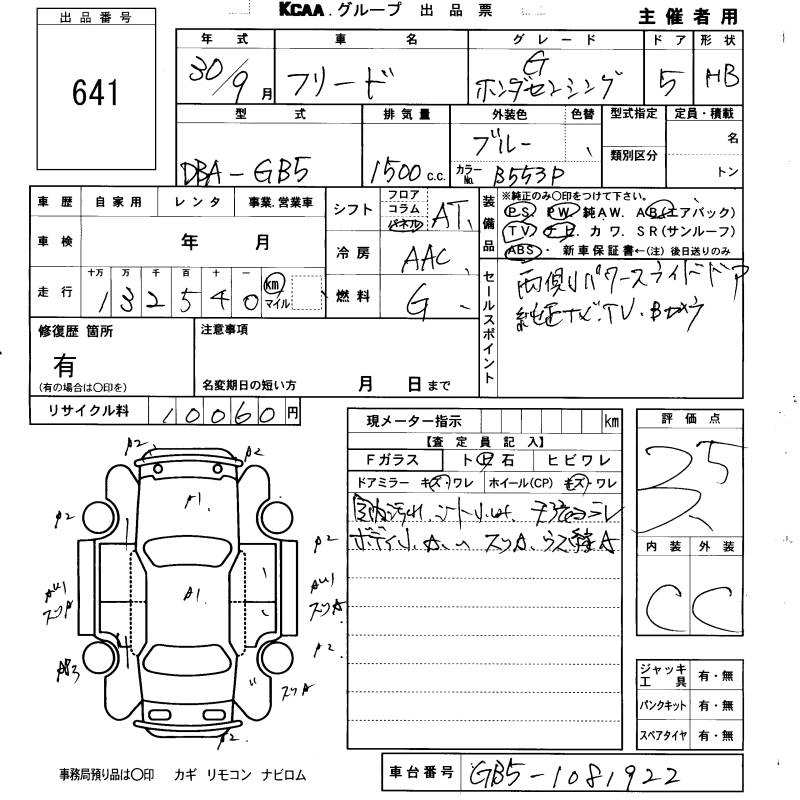 KCAA.グループ 出品票 主催者用
出品番号 641
年式 車名 グレード ドア 形状
30/9月 フリード G ホンダセンシング 5 HB
型式 排気量 外装色 色替 型式指定 定員・積載
DBA-GB5 1500c.c. ブルー 類別区分 名
カラーNo. B553P トン
車歴 自家用 レンタ 事業.営業車
シフト フロア コラム パネル AT
装備品 ※純正のみ〇印をつけて下さい。
PS PW 純AW. AB(エアバック)
TV ナビ. カワ. SR(サンルーフ)
ABS・新車保証書←(注) 後日送りのみ
車検 年 月
冷房 AAC
走行 十万 万 千 百 十 一
132540 km マイル
燃料 G
セールスポイント 両側パワースライドドア
純正ナビ.TV.Bカメラ
修復歴 箇所 注意事項
有
(有の場合は〇印を) 名変期日の短い方 月 日まで
リサイクル料 10060円
現メーター指示 km
【査定員記入】
Fガラス トビ石 ヒビワレ
ドアミラー キズ・ワレ ホイール(CP) キズ・ワレ
ボディ小A
評価点
3.5
内装 外装
C C
A2 A2
A1
A2 A2
A1
スリA スリA
A2
スリA
A2
ジャッキ工具 有・無
パンクキット 有・無
スペアタイヤ 有・無
車台番号 GB5-1081922
事務局預り品は〇印 カギ リモコン ナビロム